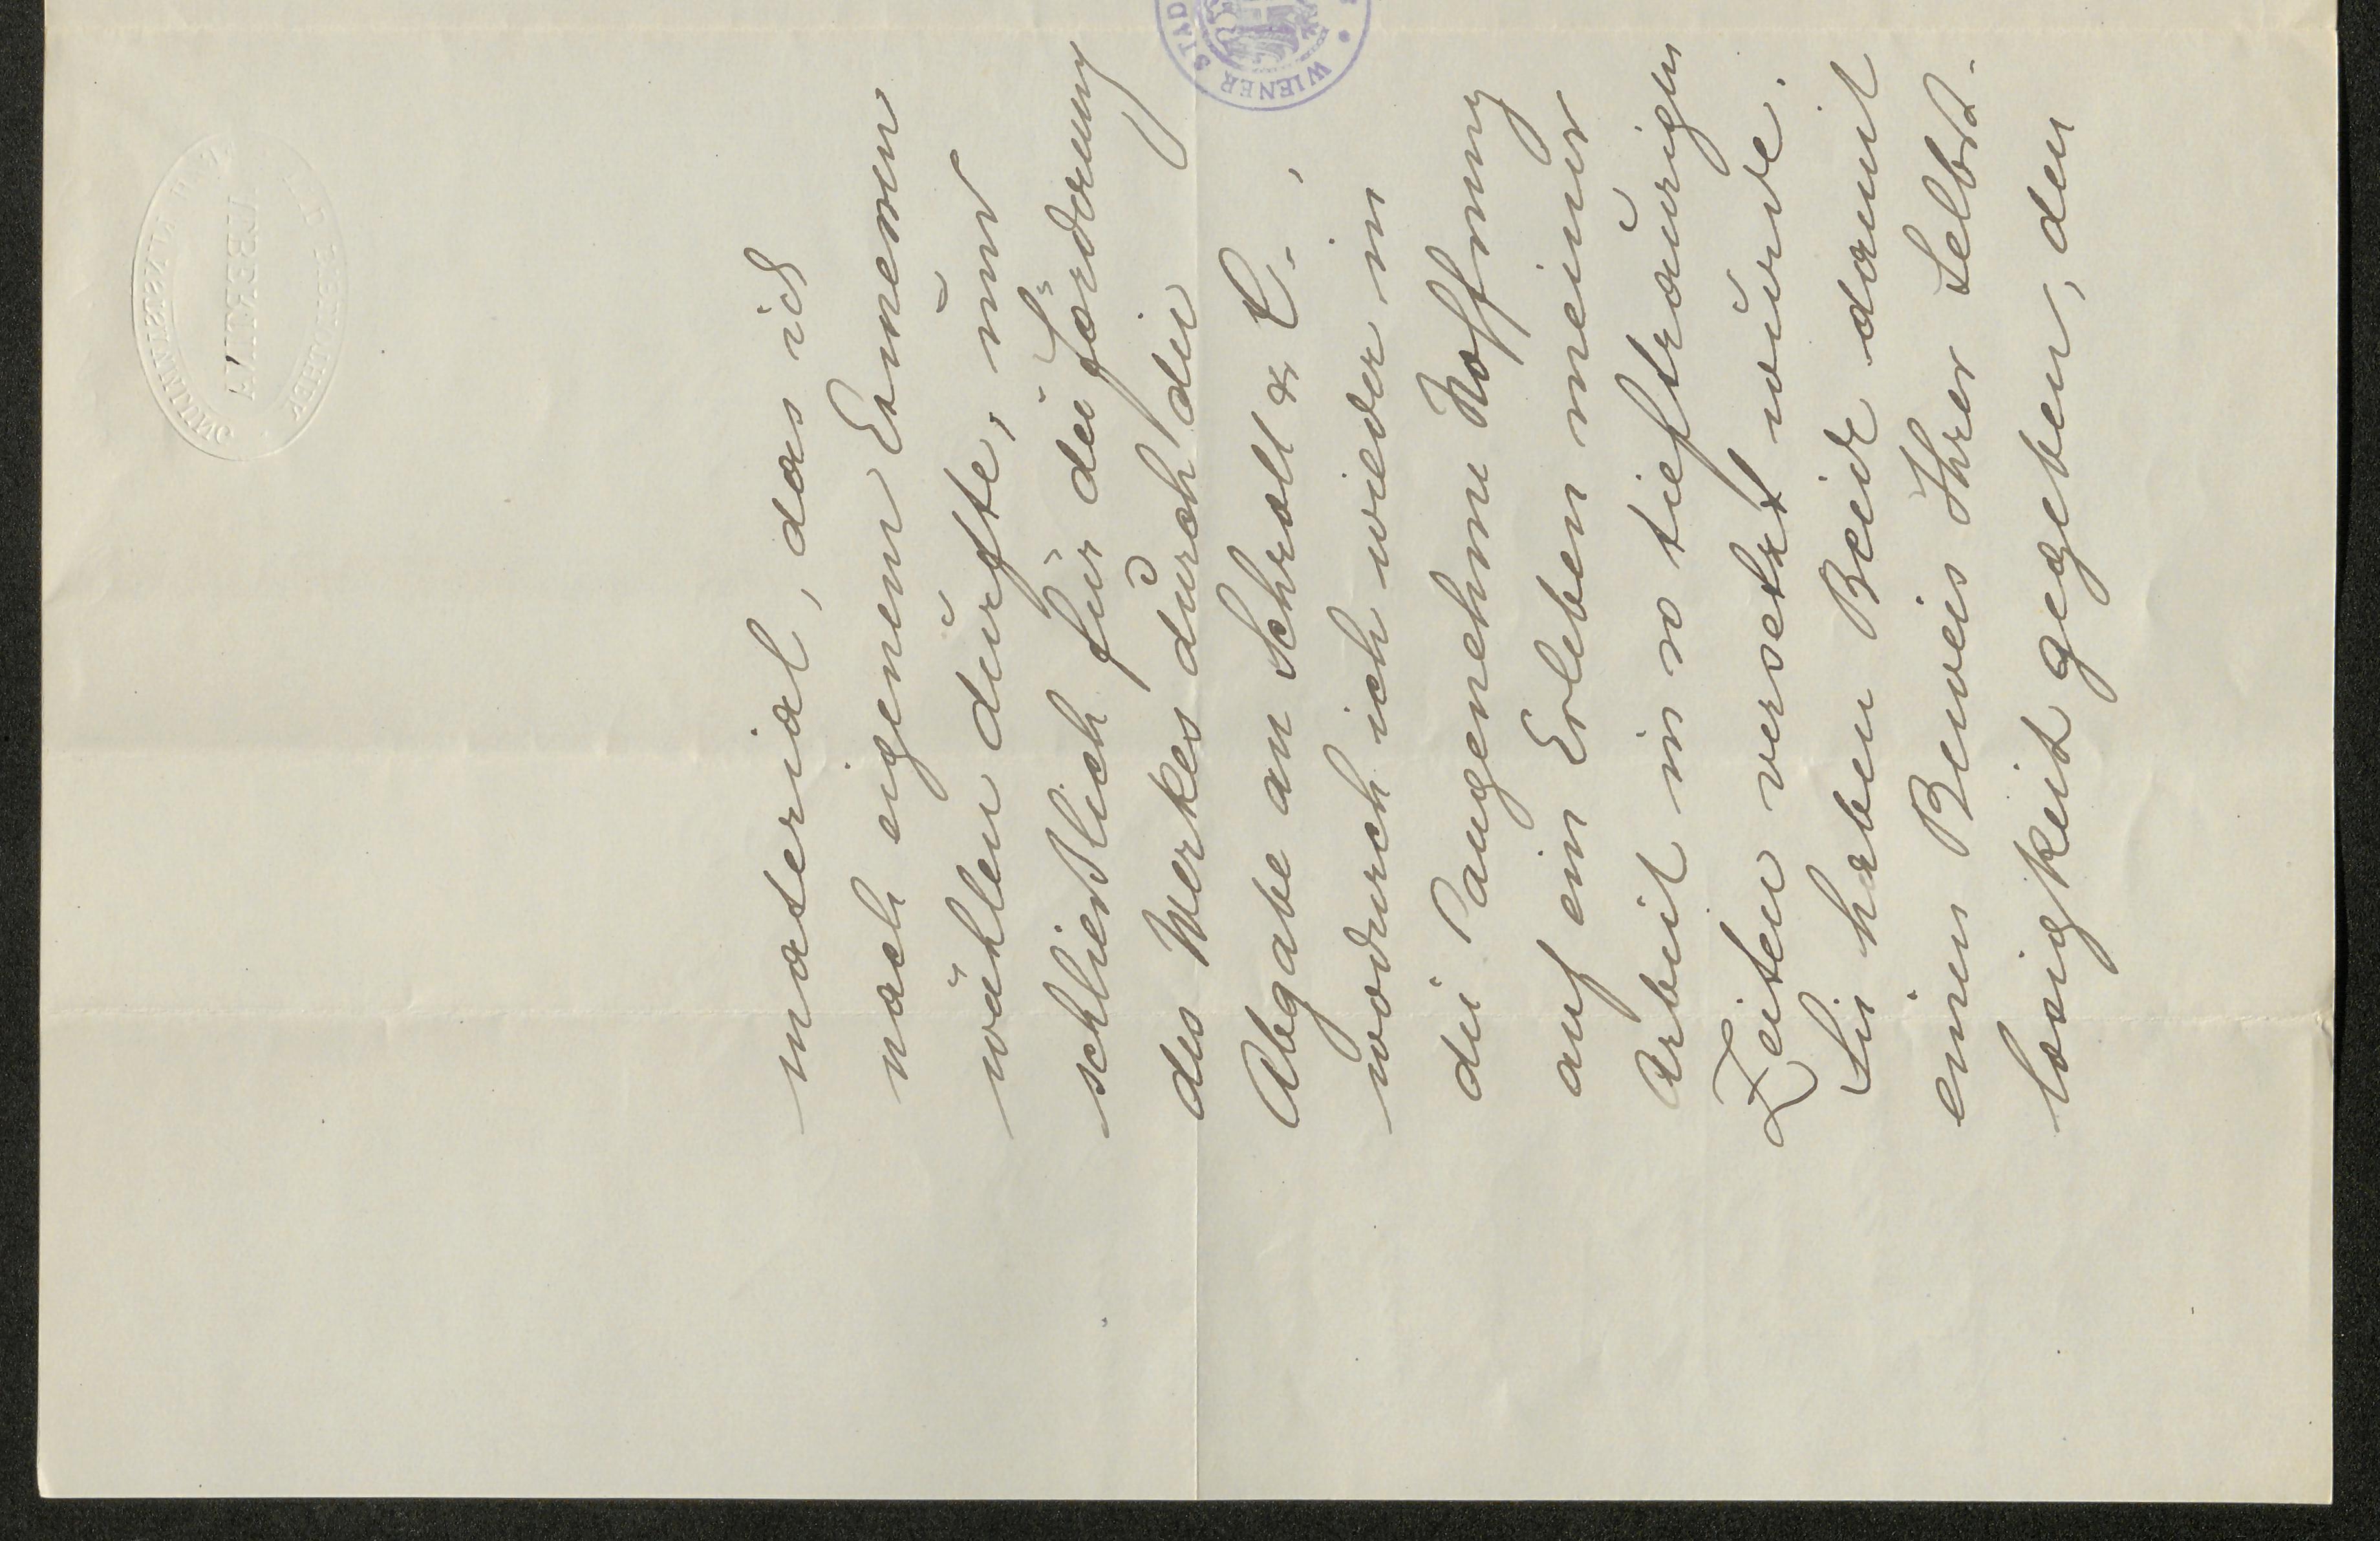 material, das ich
nach eigenem Ermessen
wählen dürfte, und
schließlich für die Förderung
des Werkes durch die
Abgabe an Schroll & C.,
wodurch ich wieder in
die angenehme Hoffnung
auf ein Erleben meiner
Arbeit in so tieftraurigen
Zeiten versetzt würde.
Sie haben Beide damit
einen Beweis Ihrer Selbst-
losigkeit gegeben, den
WIENER STAD
ALBERTINA